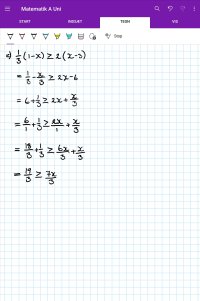 Matematik A Uni
START
INDSÆT
TEGN
VIS
Stop
c) 1/3 (1-x) ≥ 2(x-3)
= 1/3 - x/3 ≥ 2x-6
= 6 + 1/3 ≥ 2x + x/3
= 6/1 + 1/3 ≥ 2x/1 + x/3
= 18/3 + 1/3 ≥ 6x/3 + x/3
= 19/3 ≥ 7x/3